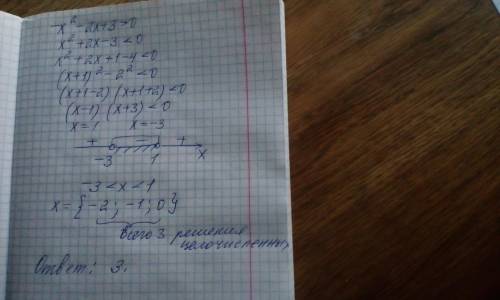 -x²-2x+3>0
x²+2x-3<0
x²+2x+1-4<0
(x+1)²-2²<0
(x+1-2)(x+1+2)<0
(x-1)(x+3)<0
x=1 x=-3
+ - +
-3 1 x
-3<x<1
x={-2; -1; 0}
всего 3 решения
целочисленных
Ответ: 3.